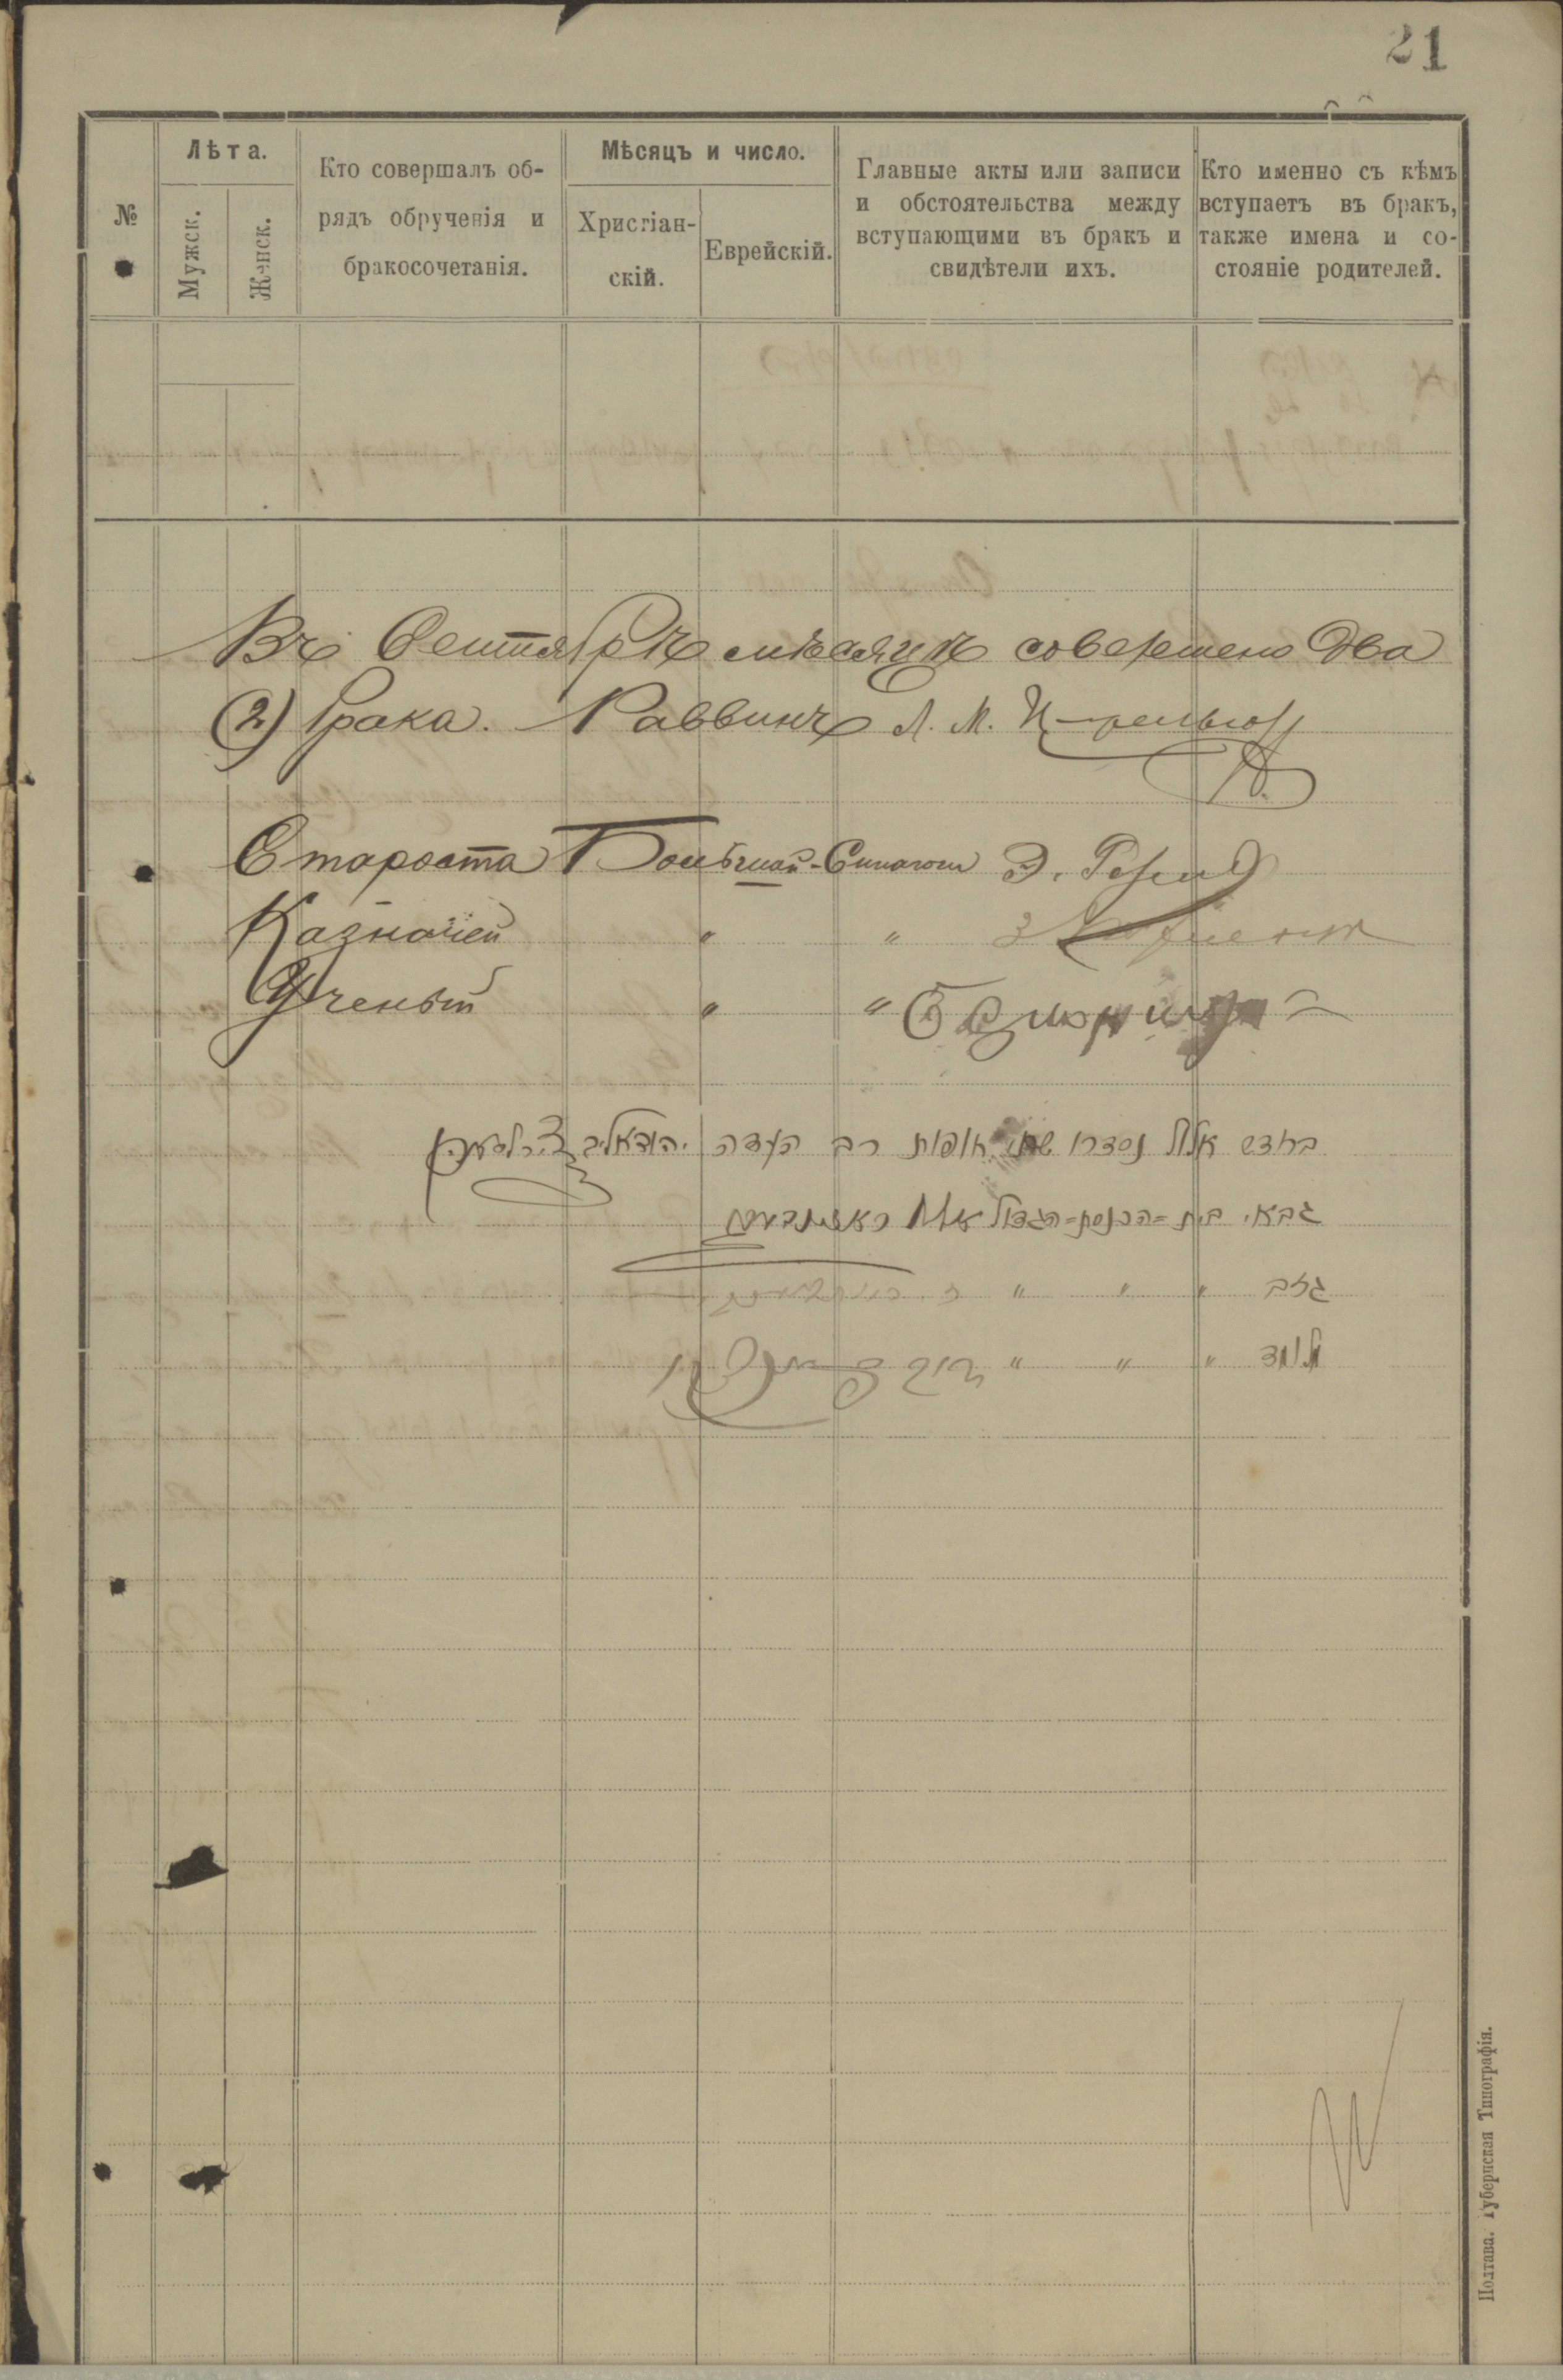 21
№
Лѣта.
Мужск.
Женск.
Кто совершалъ об-
рядъ обрученія и
бракосочетанія.
Мѣсяцъ и число.
Христіан-
скій.
Еврейскій.
Главные акты или записи
и обстоятельства между
вступающими въ бракъ и
свидѣтели ихъ.
Кто именно съ кѣмъ
вступаетъ въ бракъ,
также имена и со-
стояніе родителей.
Въ Сентябрѣ мѣсяцѣ совершено два
(2) брака. Раввинъ Л. М.
Староста Большой Синагоги Э.
Казначей " "
Ученый " "
בחודש אלול נסדרו שתי חופות רב העדה יהודא ליב צירלזאהן
גבאי בית-הכנסת-הגדול
גזבר " " "
מלומד " " " ברוך
Полтава. Губернская Типографія.